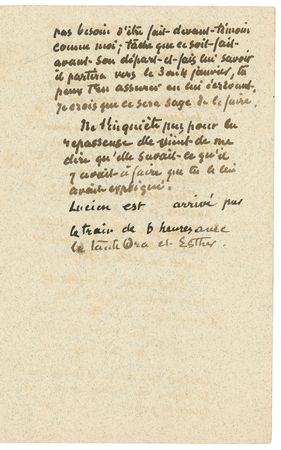 pas besoin d'être fait devant témoin
comme moi; tâche que ce soit fait
avant son départ et fais lui savoir
il partira vers le 3 ou 4 janvier, tu
peux t'en assurer en lui écrivant.
Je crois que ce sera sage de le faire.
Ne t'inquiète pas pour la
repasseuse elle vient de me
dire qu'elle savait ce qu'il
y avait à faire que tu le lui
avait expliqué.
Lucien est arrivé par
le train de 6 heures avec
la tante Ora et Esther.